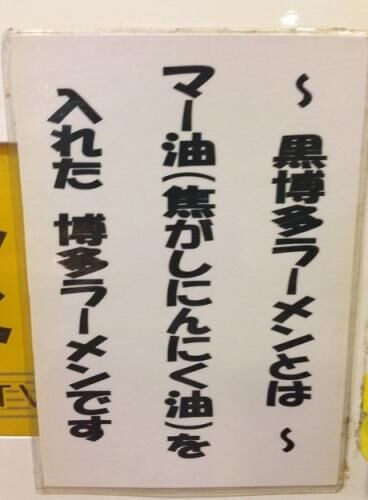 ～ 黒博多ラーメンとは ～
マー油(焦がしにんにく油)を
入れた 博多ラーメンです